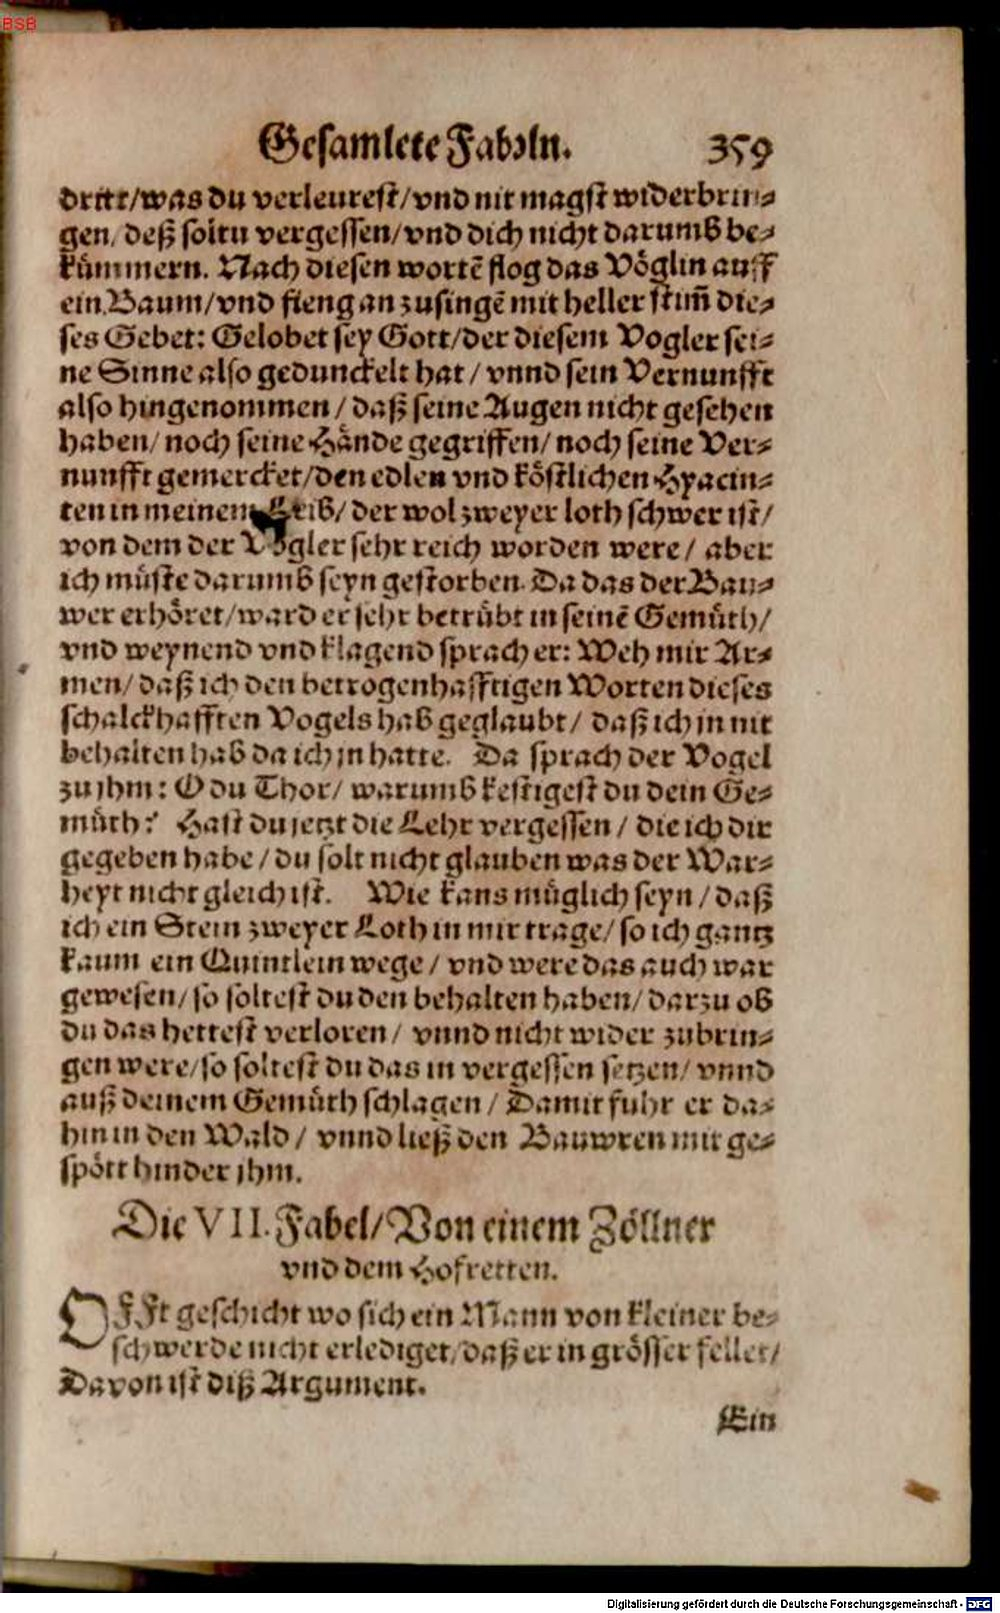 BSB
Gesamlete Fabeln. 359
dritt/was du verleurest/vnd nit magst widerbrin⸗
gen/deß soltu vergessen/vnd dich nicht darumb be⸗
kümmern. Nach diesen wortẽ flog das Vöglin auff
ein Baum/vnd fieng an zusingẽ mit heller stim̃ die⸗
ses Gebet: Gelobet sey Gott/der diesem Vogler sei⸗
ne Sinne also gedunckelt hat / vnnd sein Vernunfft
also hingenommen / daß seine Augen nicht gesehen
haben/ noch seine Hände gegriffen/ noch seine Ver⸗
nunfft gemercket/den edlen vnd köstlichen Hyacin⸗
ten in meinem Leib/ der wol zweyer loth schwer ist/
von dem der Vogler sehr reich worden were / aber
ich müste darumb seyn gestorben. Da das der Bau⸗
wer erhöret/ward er sehr betrübt in seinẽ Gemüth/
vnd weynend vnd klagend sprach er: Weh mir Ar⸗
men/ daß ich den betrogenhafftigen Worten dieses
schalckhafften Vogels hab geglaubt / daß ich jn nit
behalten hab da ich jn hatte. Da sprach der Vogel
zu jhm: O du Thor/ warumb kestigest du dein Ge⸗
müth? Hast du jetzt die Lehr vergessen / die ich dir
gegeben habe / du solt nicht glauben was der War⸗
heyt nicht gleich ist. Wie kans müglich seyn / daß
ich ein Stein zweyer Loth in mir trage/ so ich gantz
kaum ein Quintlein wege / vnd were das auch war
gewesen/ so soltest du den behalten haben/ darzu ob
du das hettest verloren / vnnd nicht wider zubrin⸗
gen were/so soltest du das in vergessen setzen/ vnnd
auß deinem Gemüth schlagen / Damit fuhr er da⸗
hin in den Wald / vnnd ließ den Bauwren mit ge⸗
spött hinder jhm.
Die VII. Fabel/Von einem Zöllner
vnd dem Hofretten.
OFFt geschicht wo sich ein Mann von kleiner be⸗
schwerde nicht erlediget/daß er in grösser fellet/
Davon ist diß Argument.
Ein
Digitalisierung gefördert durch die Deutsche Forschungsgemeinschaft - DFG